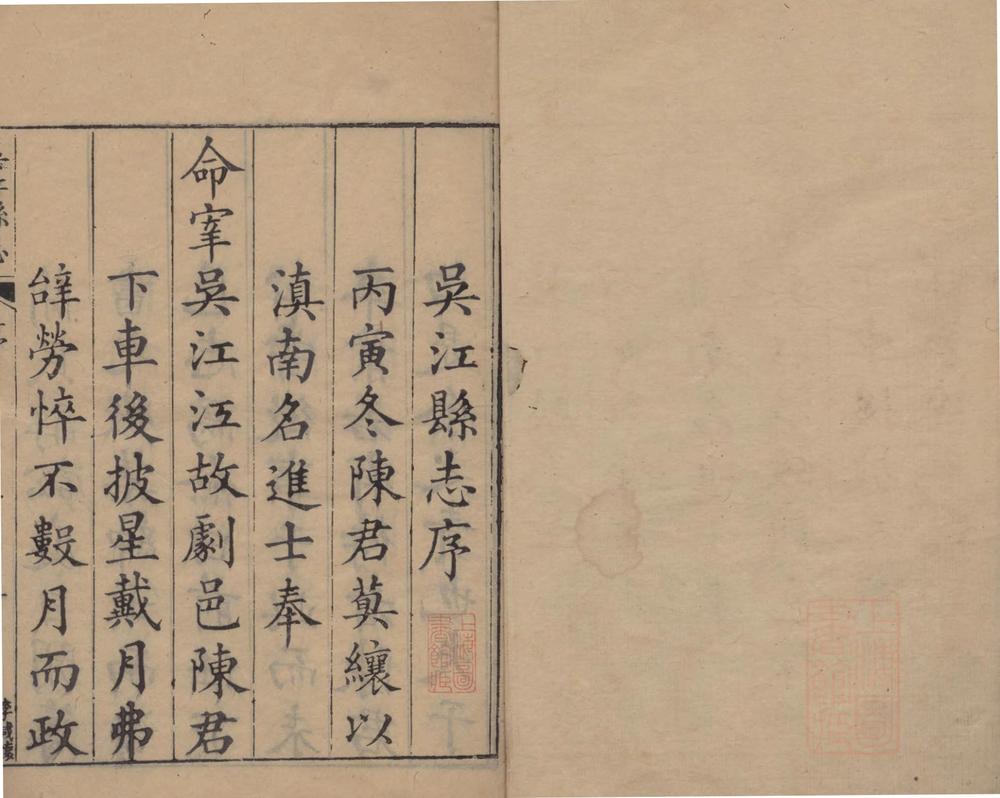 吳江縣志序
丙寅冬陳君莫纕以
滇南名進士奉
命宰吳江江故劇邑陳君
下車後披星戴月弗
辝勞悴不數月而政
上海圖書館藏